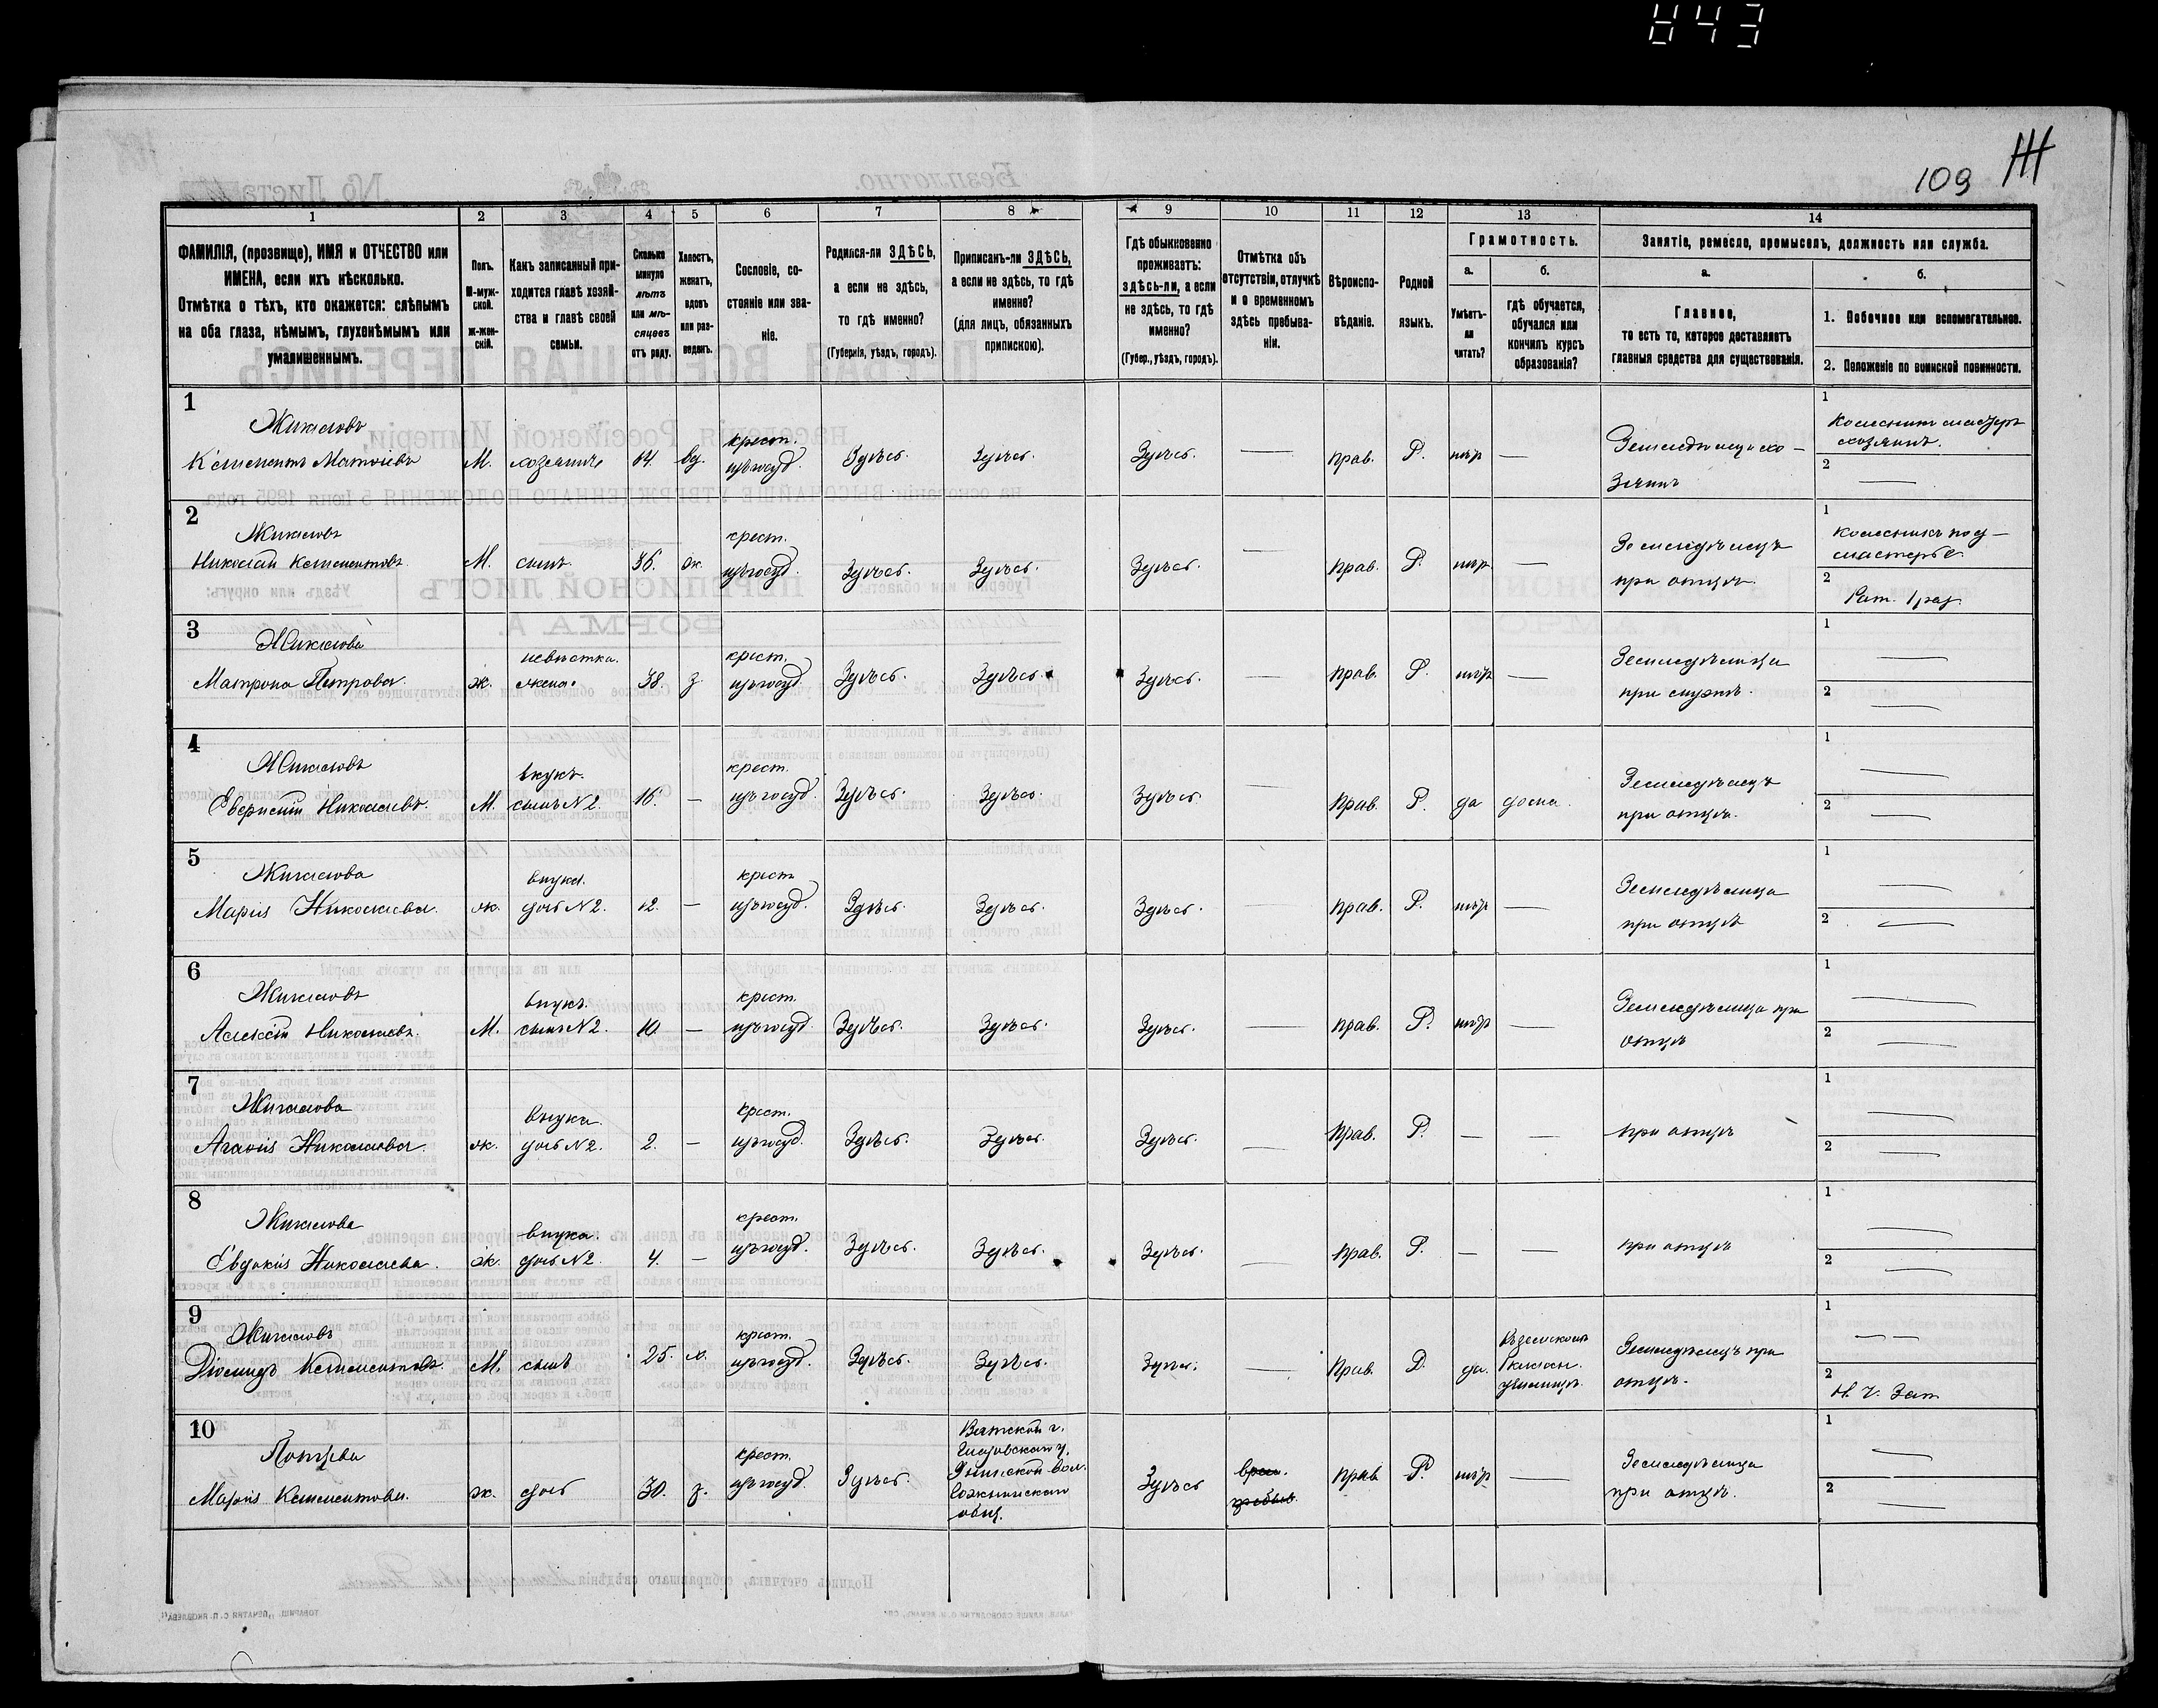 843
109
1 2 3 4 5 6 7 8 9 10 11 12 13 14
ФАМИЛІЯ, (прозвище), ИМЯ и ОТЧЕСТВО или
ИМЕНА, если ихъ нѣсколько.
Отмѣтка о тѣхъ, кто окажется: слѣпымъ
на оба глаза, нѣмымъ, глухонѣмымъ или
умалишеннымъ.
Полъ.
М-муж-
ской.
ж-жен-
скій.
Какъ записанный при-
ходится главѣ хозяй-
ства и главѣ своей
семьи.
Сколько
минуло
лѣтъ
или мѣ-
сяцевъ
отъ роду.
Холостъ,
женатъ,
вдовъ
или раз-
веденъ.
Сословіе, со-
стояніе или зва-
ніе.
Родился-ли ЗДѢСЬ,
а если не здѣсь,
то гдѣ именно?
(Губернія, уѣздъ, городъ).
Приписанъ-ли ЗДѢСЬ,
а если не здѣсь, то гдѣ
именно?
(для лицъ, обязанныхъ
припискою).
Гдѣ обыкновенно
проживаетъ:
здѣсь-ли, а если
не здѣсь, то гдѣ
именно?
(Губер., уѣздъ, городъ).
Отмѣтка объ
отсутствіи, отлучкѣ
и о временномъ
здѣсь пребыва-
ніи.
Вѣроиспо-
вѣданіе.
Родной
языкъ.
Грамотность.
а.
Умѣетъ-
ли
читать?
б.
гдѣ обучается,
обучался или
кончилъ курсъ
образованія?
Занятіе, ремесло, промыселъ, должность или служба.
а.
Главное,
то есть то, которое доставляетъ
главныя средства для существованія.
б.
1. Побочное или вспомогательное.
2. Положеніе по воинской повинности.
1
Жикаловъ
Климентъ Матвіевъ М. хозяинъ 64 вд. крест. из госуд. Здѣсь. Здѣсь. Здѣсь. — прав. Р. нѣтъ —
Земледѣлецъ хо-
зяинъ
1 Колесникъ мастеръ
хозяинъ.
2 —
2
Жикаловъ
Николай Климентовъ М. сынъ 36. ж. крест. из госуд. Здѣсь. Здѣсь. Здѣсь. — прав. Р. нѣтъ —
Земледѣлецъ
при отцѣ.
1 Колесникъ под-
мастерье
2 Рат. 1 раз.
3
Жикалова
Матрона Петрова ж. невѣстка. жена 38. з. крест. из госуд. Здѣсь. Здѣсь. Здѣсь. — прав. Р. нѣтъ —
Земледѣлица
при мужѣ.
1 —
2 —
4
Жикаловъ
Николаевъ М. внукъ. сынъ N2. 16. — крест. из госуд. Здѣсь. Здѣсь. Здѣсь. — прав. Р. да дома.
Земледѣлецъ
при отцѣ.
1 —
2 —
5
Жикалова
Марія Николаева. ж. внука. дочь N2. 12. — крест. из госуд. Здѣсь. Здѣсь. Здѣсь. — прав. Р. нѣтъ —
Земледѣлица
при отцѣ
1 —
2 —
6
Жикаловъ
Алексѣй Николаевъ. М. внукъ. сынъ N2. 10 — крест. из госуд. Здѣсь. Здѣсь. Здѣсь. — прав. Р. нѣтъ —
Земледѣлица при
отцѣ
1 —
2 —
7
Жикалова
Агафія Николаева ж. внука. дочь N2. 2. — крест. из госуд. Здѣсь. Здѣсь. Здѣсь. — прав. Р. — — при отцѣ
1 —
2 —
8
Жикалова
Евдокія Николаева. ж. внука. дочь N2. 4. — крест. из госуд. Здѣсь. Здѣсь. Здѣсь. — прав. Р. — — при отцѣ
1 —
2 —
9
Жикаловъ
Діомидъ Климентовъ М. сынъ 25. х. крест. из госуд. Здѣсь. Здѣсь. Здѣсь. — прав. Р. да.
въ земскомъ
училищѣ.
Земледѣлецъ при
отцѣ.
1 —
2
10
Марія Климентова. ж. дочь 30. з. крест. из госуд. Здѣсь.
Вятской г.
Глазовскаго у.
вол.
общ.
Здѣсь прав. Р. нѣтъ —
Земледѣлица
при отцѣ.
1 —
2 —